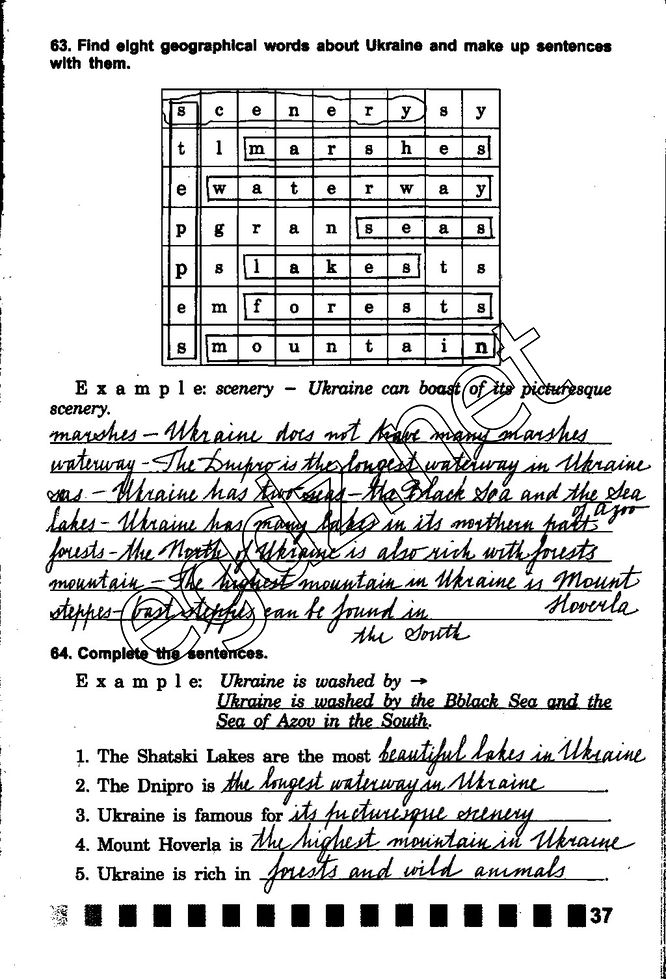 63. Find eight geographical words about Ukraine and make up sentences
with them.
s c e n e r y s y
t l m a r s h e s
e w a t e r w a y
p g r a n s e a s
p s l a k e s t s
e m f o r e s t s
s m o u n t a i n
E x a m p l e: scenery – Ukraine can boast of its picturesque
scenery.
marshes – Ukraine does not have many marshes
waterway - The Dnipro is the longest waterway in Ukraine
seas – Ukraine has two seas – the Black Sea and the Sea
of Azov
lakes - Ukraine has many lakes in its northern part
forests - the North of Ukraine is also rich with forests
mountain – The highest mountain in Ukraine is Mount
Hoverla
steppes - vast steppes can be found in
the South
64. Complete the sentences.
E x a m p l e: Ukraine is washed by →
Ukraine is washed by the Bblack Sea and the
Sea of Azov in the South.
1. The Shatski Lakes are the most beautiful lakes in Ukraine
2. The Dnipro is the longest waterway in Ukraine.
3. Ukraine is famous for its picturesque scenery.
4. Mount Hoverla is the highest mountain in Ukraine
5. Ukraine is rich in forests and wild animals.
37
egdz.net